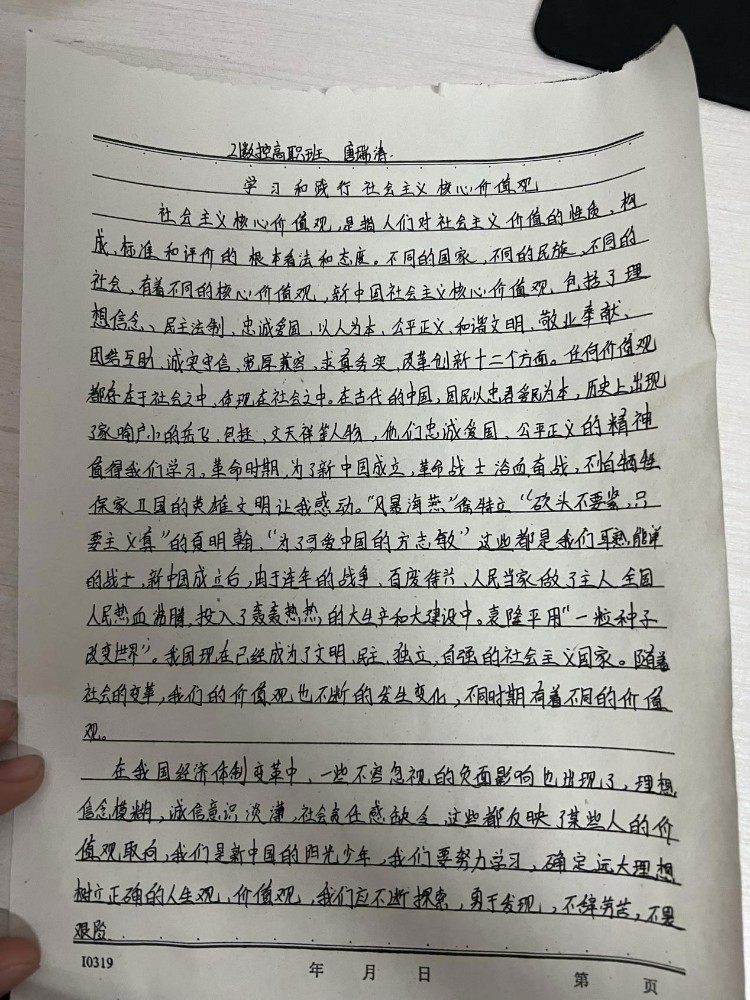 21数控高职班 唐瑞涛
学习和践行社会主义核心价值观
社会主义核心价值观,是指人们对社会主义价值的性质、构
成、标准和评价的根本看法和态度。不同的国家,不同的民族、不同的
社会,有着不同的核心价值观,新中国社会主义核心价值观,包括了理
想信念、民主法制、忠诚爱国,以人为本,公平正义、和谐文明,敬业奉献、
团结互助、诚实守信,宽厚兼容、求真务实,改革创新十二个方面。任何价值观
都存在于社会之中,体现在社会之中。在古代的中国,国民以忠君爱民为本,历史上出现
了家喻户小的岳飞,包拯,文天祥等人物,他们忠诚爱国、公平正义的精神
值得我们学习。革命时期,为了新中国成立,革命战士浴血奋战,不怕牺牲
保家卫国的英雄文明让我感动。“风暴海燕”徐特立“砍头不要紧,只
要主义真”的夏明翰、“为了可爱中国的方志敏”这些都是我们耳熟能详
的战士,新中国成立后,由于连年的战争,百废待兴、人民当家做了主人,全国
人民热血沸腾,投入了轰轰热热的大生产和大建设中。袁隆平用“一粒种子
改变世界”。我国现在已经成为了文明、民主、独立,自强的社会主义国家。随着
社会的变革,我们的价值观也不断的发生变化,不同时期有着不同的价值
观。
在我国经济体制变革中,一些不容忽视的负面影响也出现了,理想
信念模糊,诚信意识淡薄,社会责任感缺乏,这些都反映了某些人的价
值观取向,我们是新中国的阳光少年,我们要努力学习,确定远大理想
树立正确的人生观,价值观,我们应不断探索,勇于发现,不辞劳苦,不畏
艰险
I0319 年 月 日 第 页